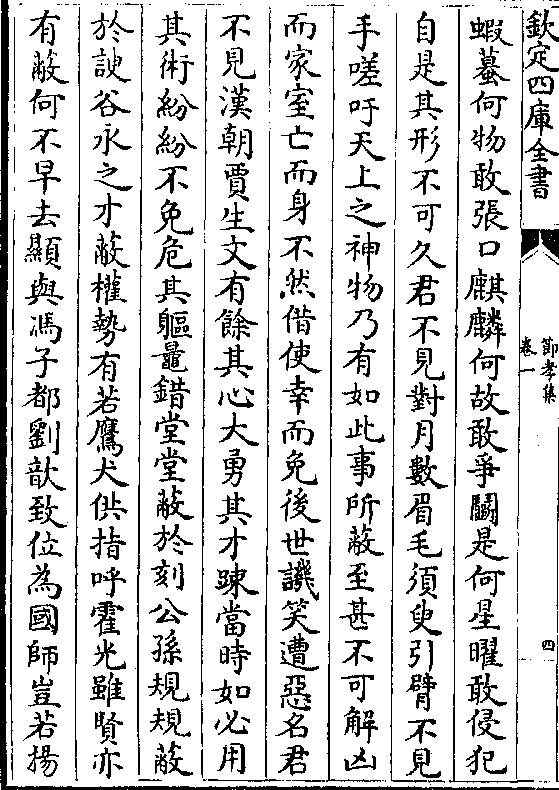 欽定四庫全書
節孝集
卷一
四
蝦蟇何物敢張口麒麟何故敢爭鬬是何星曜敢侵犯
自是其形不可久君不見對月數眉毛須臾引臂不見
手嗟吁天上之神物乃有如此事所蔽至甚不可解凶
而家室亡而身不然借使幸而免後世譏笑遭惡名君
不見漢朝賈生文有餘其心大勇其才踈當時如必用
其術紛紛不免危其軀鼂錯堂堂蔽於刻公孫規規蔽
於諛谷永之才蔽權勢有若鷹犬供指呼霍光雖賢亦
有蔽何不早去顯與馮子都劉歆致位為國師豈若揚